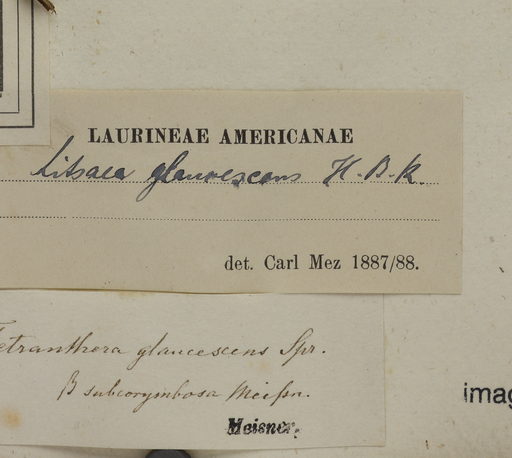 LAURINEAE AMERICANAE
Litsaea glaucescens H.B.K.
det. Carl Mez 1887/88.
Tetranthera glaucescens Spr.
β subcorymbosa Meissn.
Meisner.
imag